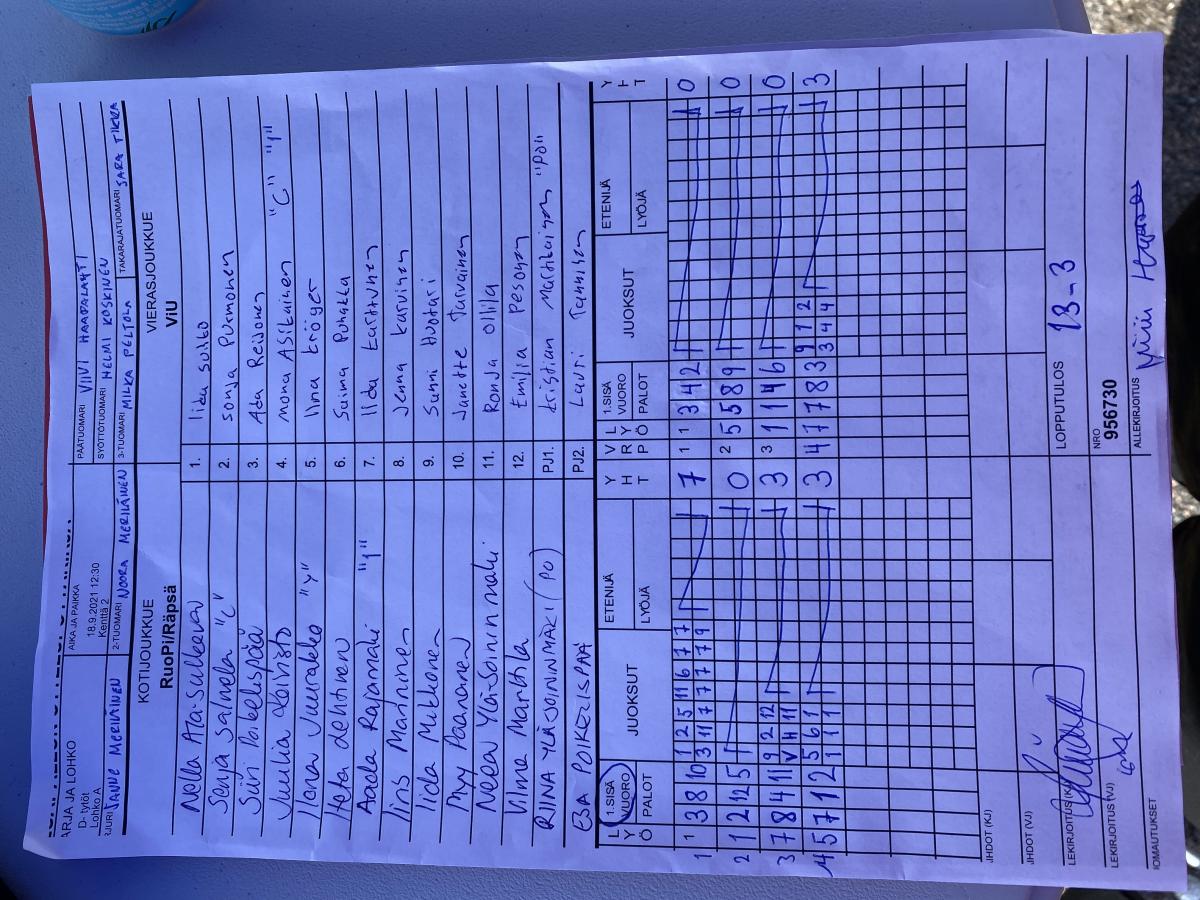 AIKA JA PAIKKA
18.9.2021 12:30
Kenttä 2
PÄÄTUOMARI VIIVI HAAPALAHTI
SYÖTTÖTUOMARI HELMI KOSKINEN
ARJA JA LOHKO
D- tytöt
Lohko A
2-TUOMARI NOORA MERILÄINEN
3-TUOMARI MILKA PELTOLA
TAKARAJATUOMARI SARA TIKKA
KOTIJOUKKUE
RuoPi/Räpsä
VIERASJOUKKUE
ViU
Nella Ala-Sulkava 1. Iida Suikko
Senja Salmela "C" 2. Sonja Purmonen
Siiri Poikelispää 3. Ada Reijonen
Juulia Koivisto 4. Mona Asikainen "C" "1"
Ilona Juurakko "Y" 5. Iina Kröger
Heta Lehtinen 6. Saima Puhakka
Aada Rajamäki "1" 7. Iida Karttunen
Iiris Manninen 8. Jenna Karvinen
Iida Mikkonen 9. Sunni Huotari
Myy Paananen 10. Janette Tarvainen
Neea Ylä-Soininmäki 11. Ronja Ollila
Vilma Mantila 12. Emilia Pesonen
RIINA YLÄ-SOININMÄKI (PO) PJ1. Kristian Martikainen "PO"
ESA POIKELISPÄÄ PJ2. Lauri Tanninen
L Y Ö 1.SISÄ VUORO PALOT JUOKSUT ETENIJÄ LYÖJÄ Y H T V R P L Y Ö 1.SISÄ VUORO PALOT JUOKSUT ETENIJÄ LYÖJÄ Y H T
1 1 3 8 10 1 2 5 11 6 7 7 7 1 1 3 4 2 0
3 11 7 7 7 7 9
2 1 2 12 5 0 2 5 5 8 9 0
3 7 8 4 11 9 2 12 3 3 1 1 4 6 0
V H 11
4 5 7 1 2 5 6 1 3 4 7 7 8 3 9 1 2 3
1 1 1 3 4 4
LOPPUTULOS 13-3
NRO
956730
ALLEKIRJOITUS